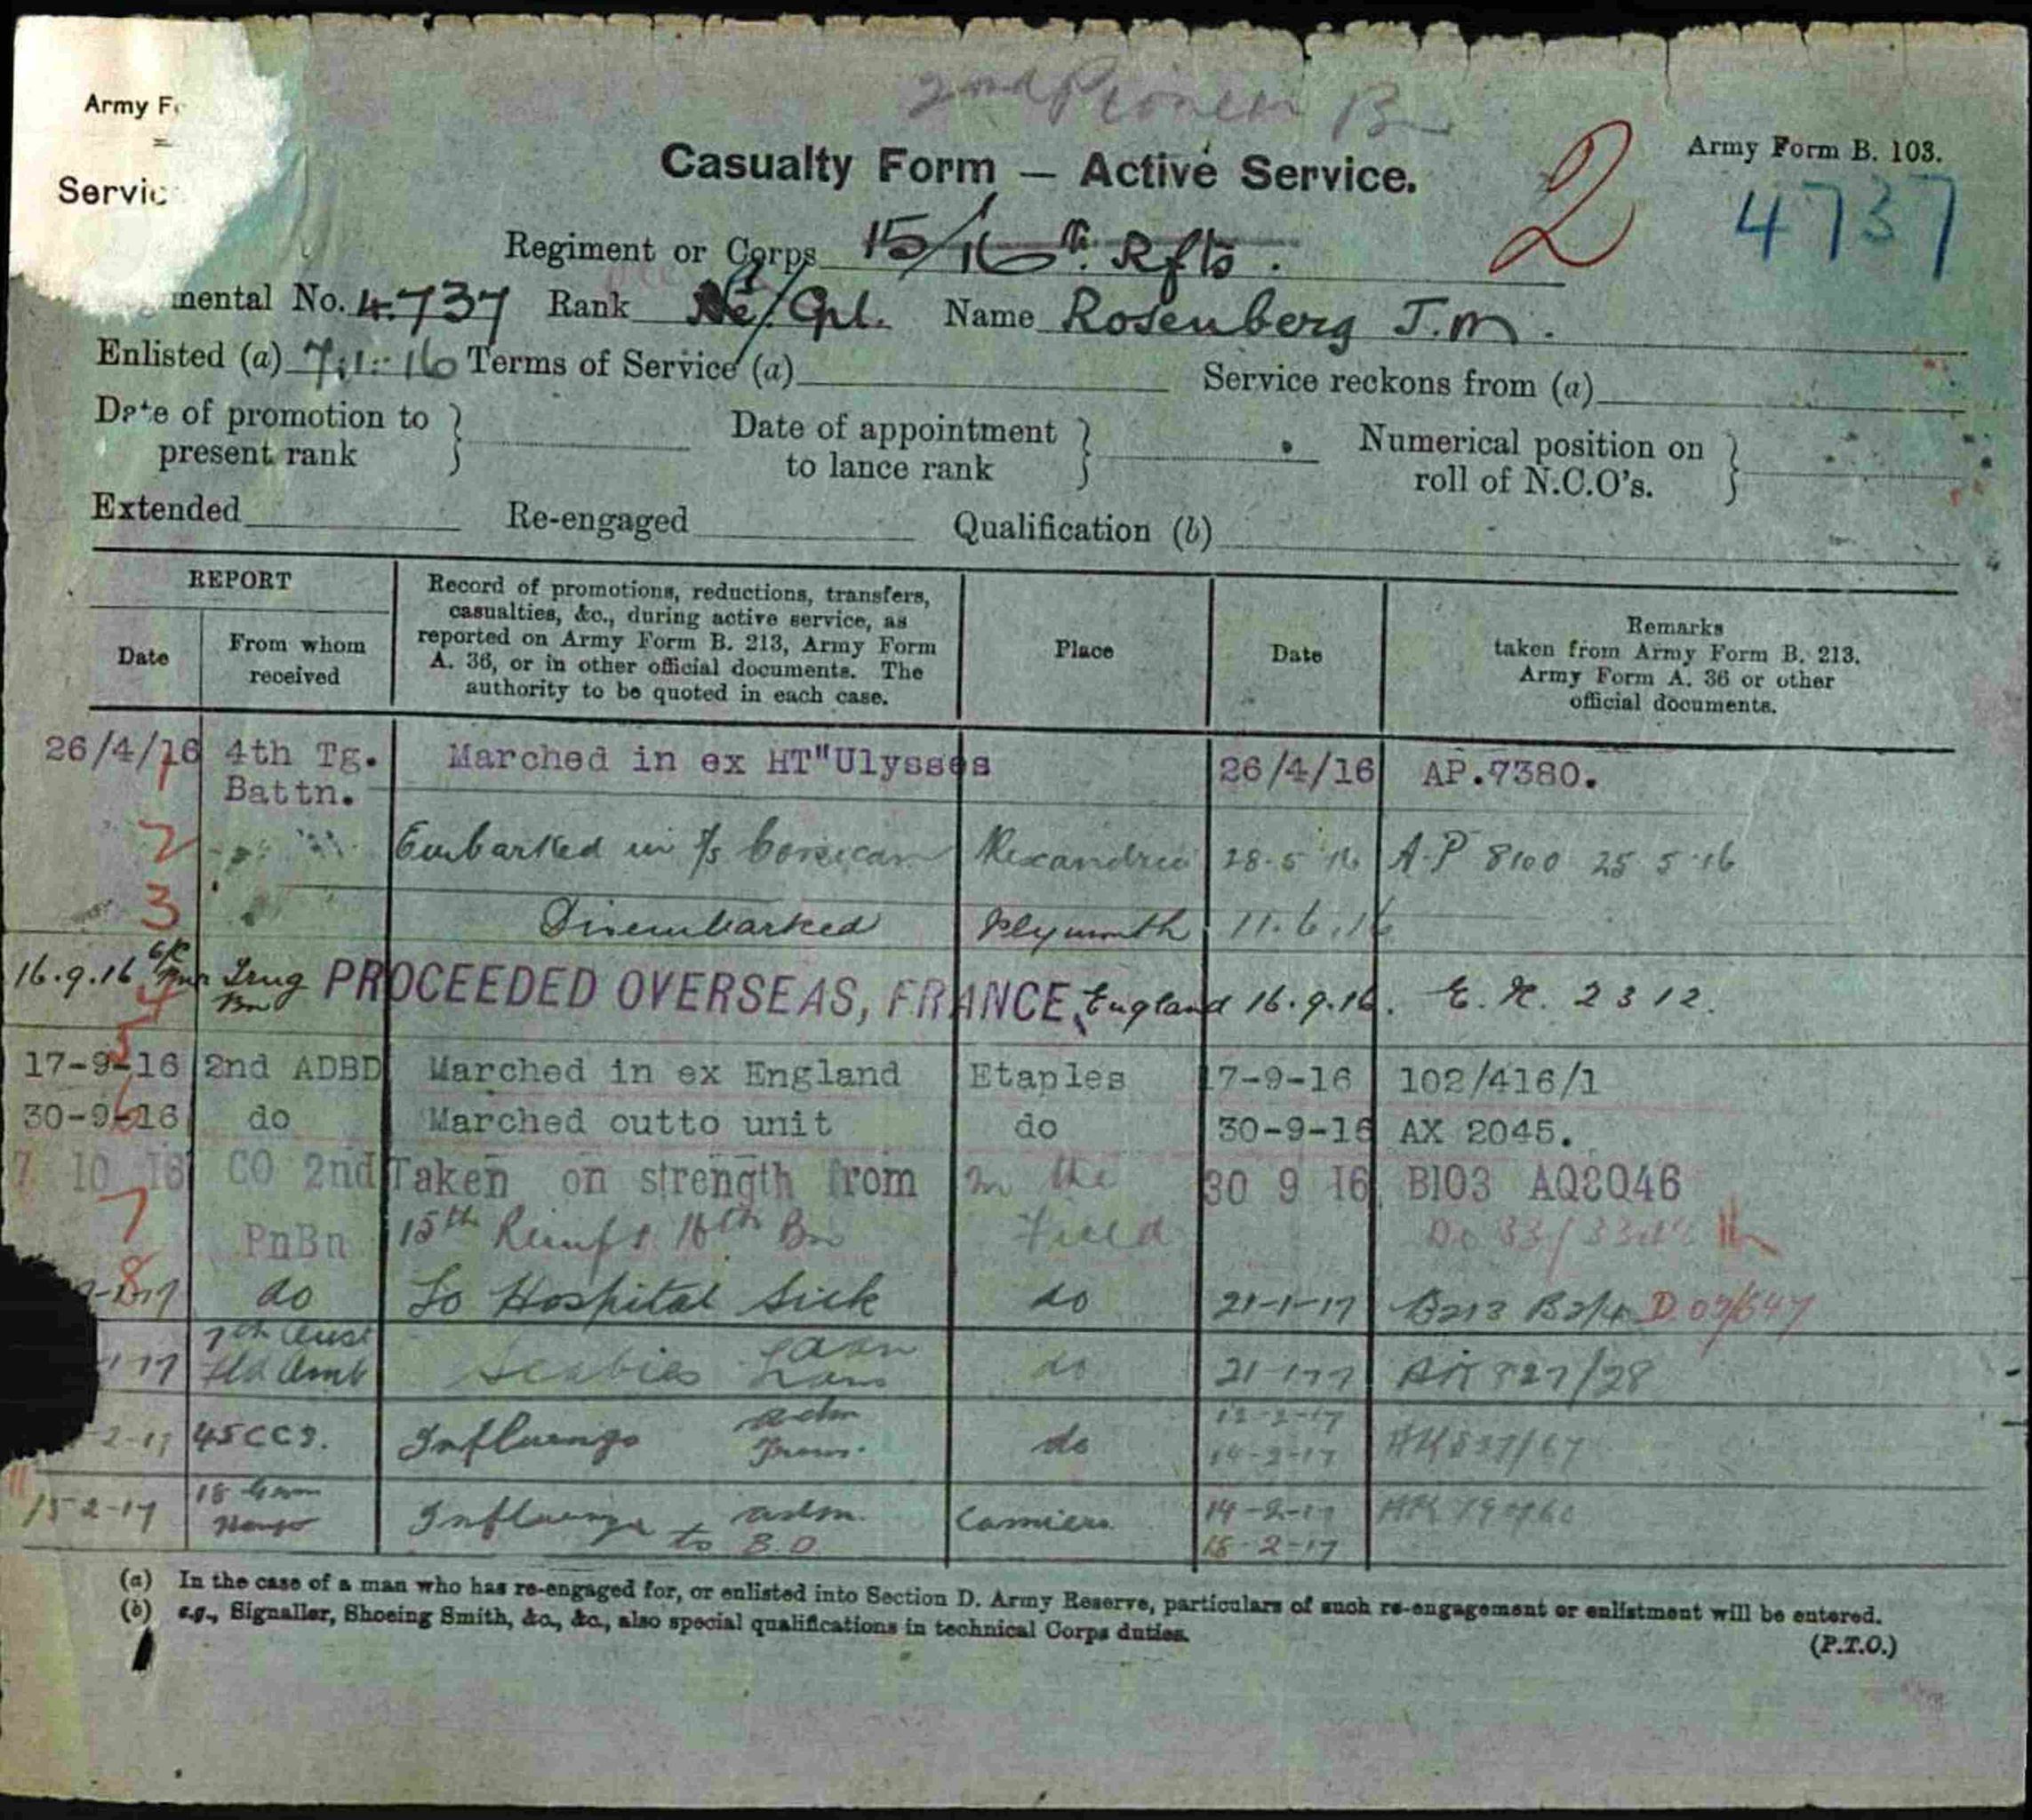 2nd Pioneer Bn
Army Form B. 103.
Army F
Casualty Form — Active Service.
2
4737
Servic
Regiment or Corps 15/16th Rfts.
mental No. 4737 Rank /Cpl. Name Rosenberg J.M.
Enlisted (a) 7.1.16 Terms of Service (a) Service reckons from (a)
Date of promotion to present rank } Date of appointment to lance rank } Numerical position on roll of N.C.O's. }
Extended Re-engaged Qualification (b)
REPORT
Date
From whom received
Record of promotions, reductions, transfers,
casualties, &c., during active service, as
reported on Army Form B. 213, Army Form
A. 36, or in other official documents. The
authority to be quoted in each case.
Place
Date
Remarks
taken from Army Form B. 213.
Army Form A. 36 or other
official documents.
26/4/16 4th Tg. Marched in ex HT"Ulysses 26/4/16 AP.7380.
1
Battn.
2 Embarked in s/s Corsican Alexandria 28.5.16 A.P 8100 25 5 16
3 Disembarked Plymouth 11.6.16
16.9.16 Trng Bn PROCEEDED OVERSEAS, FRANCE, England 16.9.16. 2312.
4
5
17-9-16 2nd ADBD Marched in ex England Etaples 17-9-16 102/416/1
6
30-9-16 do Marched outto unit do 30-9-16 AX 2045.
7 10 16 CO 2nd Taken on strength from In the 30 9 16 B103 AQ2046
7
PnBn 15th Reinfs 16th Bn Field
8
do To Hospital Sick do 21-1-17 B213
7th Aust
17 Fld Amb Scabies do 21-1-17
-2-17 45CCS. Influenza adm Trans. do 12-2-17 14-2-17
15-2-17 18 Influenza adm. to B.D. Camiers 14-2-17 15-2-17
(a) In the case of a man who has re-engaged for, or enlisted into Section D. Army Reserve, particulars of such re-engagement or enlistment will be entered.
(b) e.g., Signaller, Shoeing Smith, &c., &c., also special qualifications in technical Corps duties.
(P.T.O.)